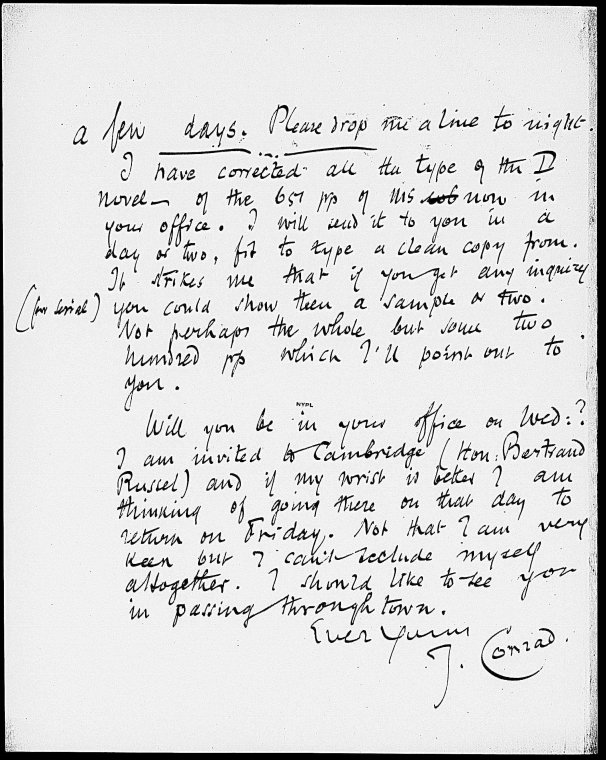 a few days. Please drop me a line to night.
I have corrected all the type of the D
novel — of the 651 pp of MS now in
your office. I will send it to you in a
day or two, fit to type a clean copy from.
It strikes me that if you get any inquiry
(for serial) you could show them a sample or two.
Not perhaps the whole but some two
hundred pp which I'll point out to
you.
NYPL
Will you be in your office on Wed:?
I am invited to Cambridge (Hon: Bertrand
Russel) and if my wrist is better I am
thinking of going there on that day to
return on Friday. Not that I am very
keen but I can't seclude myself
altogether. I should like to see you
in passing through town.
Ever Yours
J. Conrad.